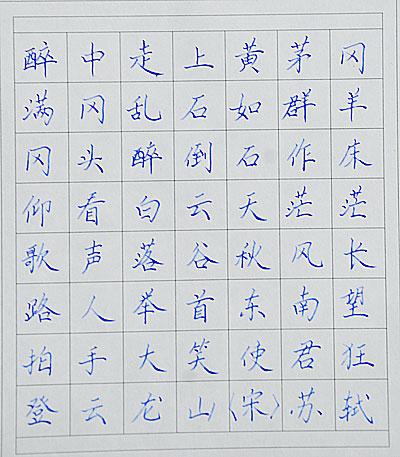 醉中走上黄茅冈
满冈乱石如群羊
冈头醉倒石作床
仰看白云天茫茫
歌声落谷秋风长
路人举首东南望
拍手大笑使君狂
登云龙山〈宋〉苏轼